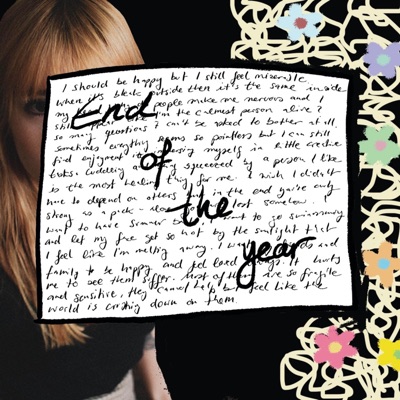 I should be happy but I still feel miserable.
When it's bleak outside then it's the same inside
my people make me nervous and I
still I'm the calmest person alive?
so many questions I can't be asked to bother at all.
Sometimes everything seems so pointless but I can still
find enjoyment in myself in little creative
tasks. Cuddling and being squeezed by a person I like
is the most healing thing for me. I wish I didn't
have to depend on others but in the end you're only
strong as a pack - lost somehow. I
want to have summer to go swimming
and let my face get so hot by the sunlight that
I feel like I'm melting away. I want and
family to be happy and feel loved always. It hurts
me to see them suffer. Most of them are so fragile
and sensitive, they cannot help but feel like the
world is crashing down on them.
End
of
the
year